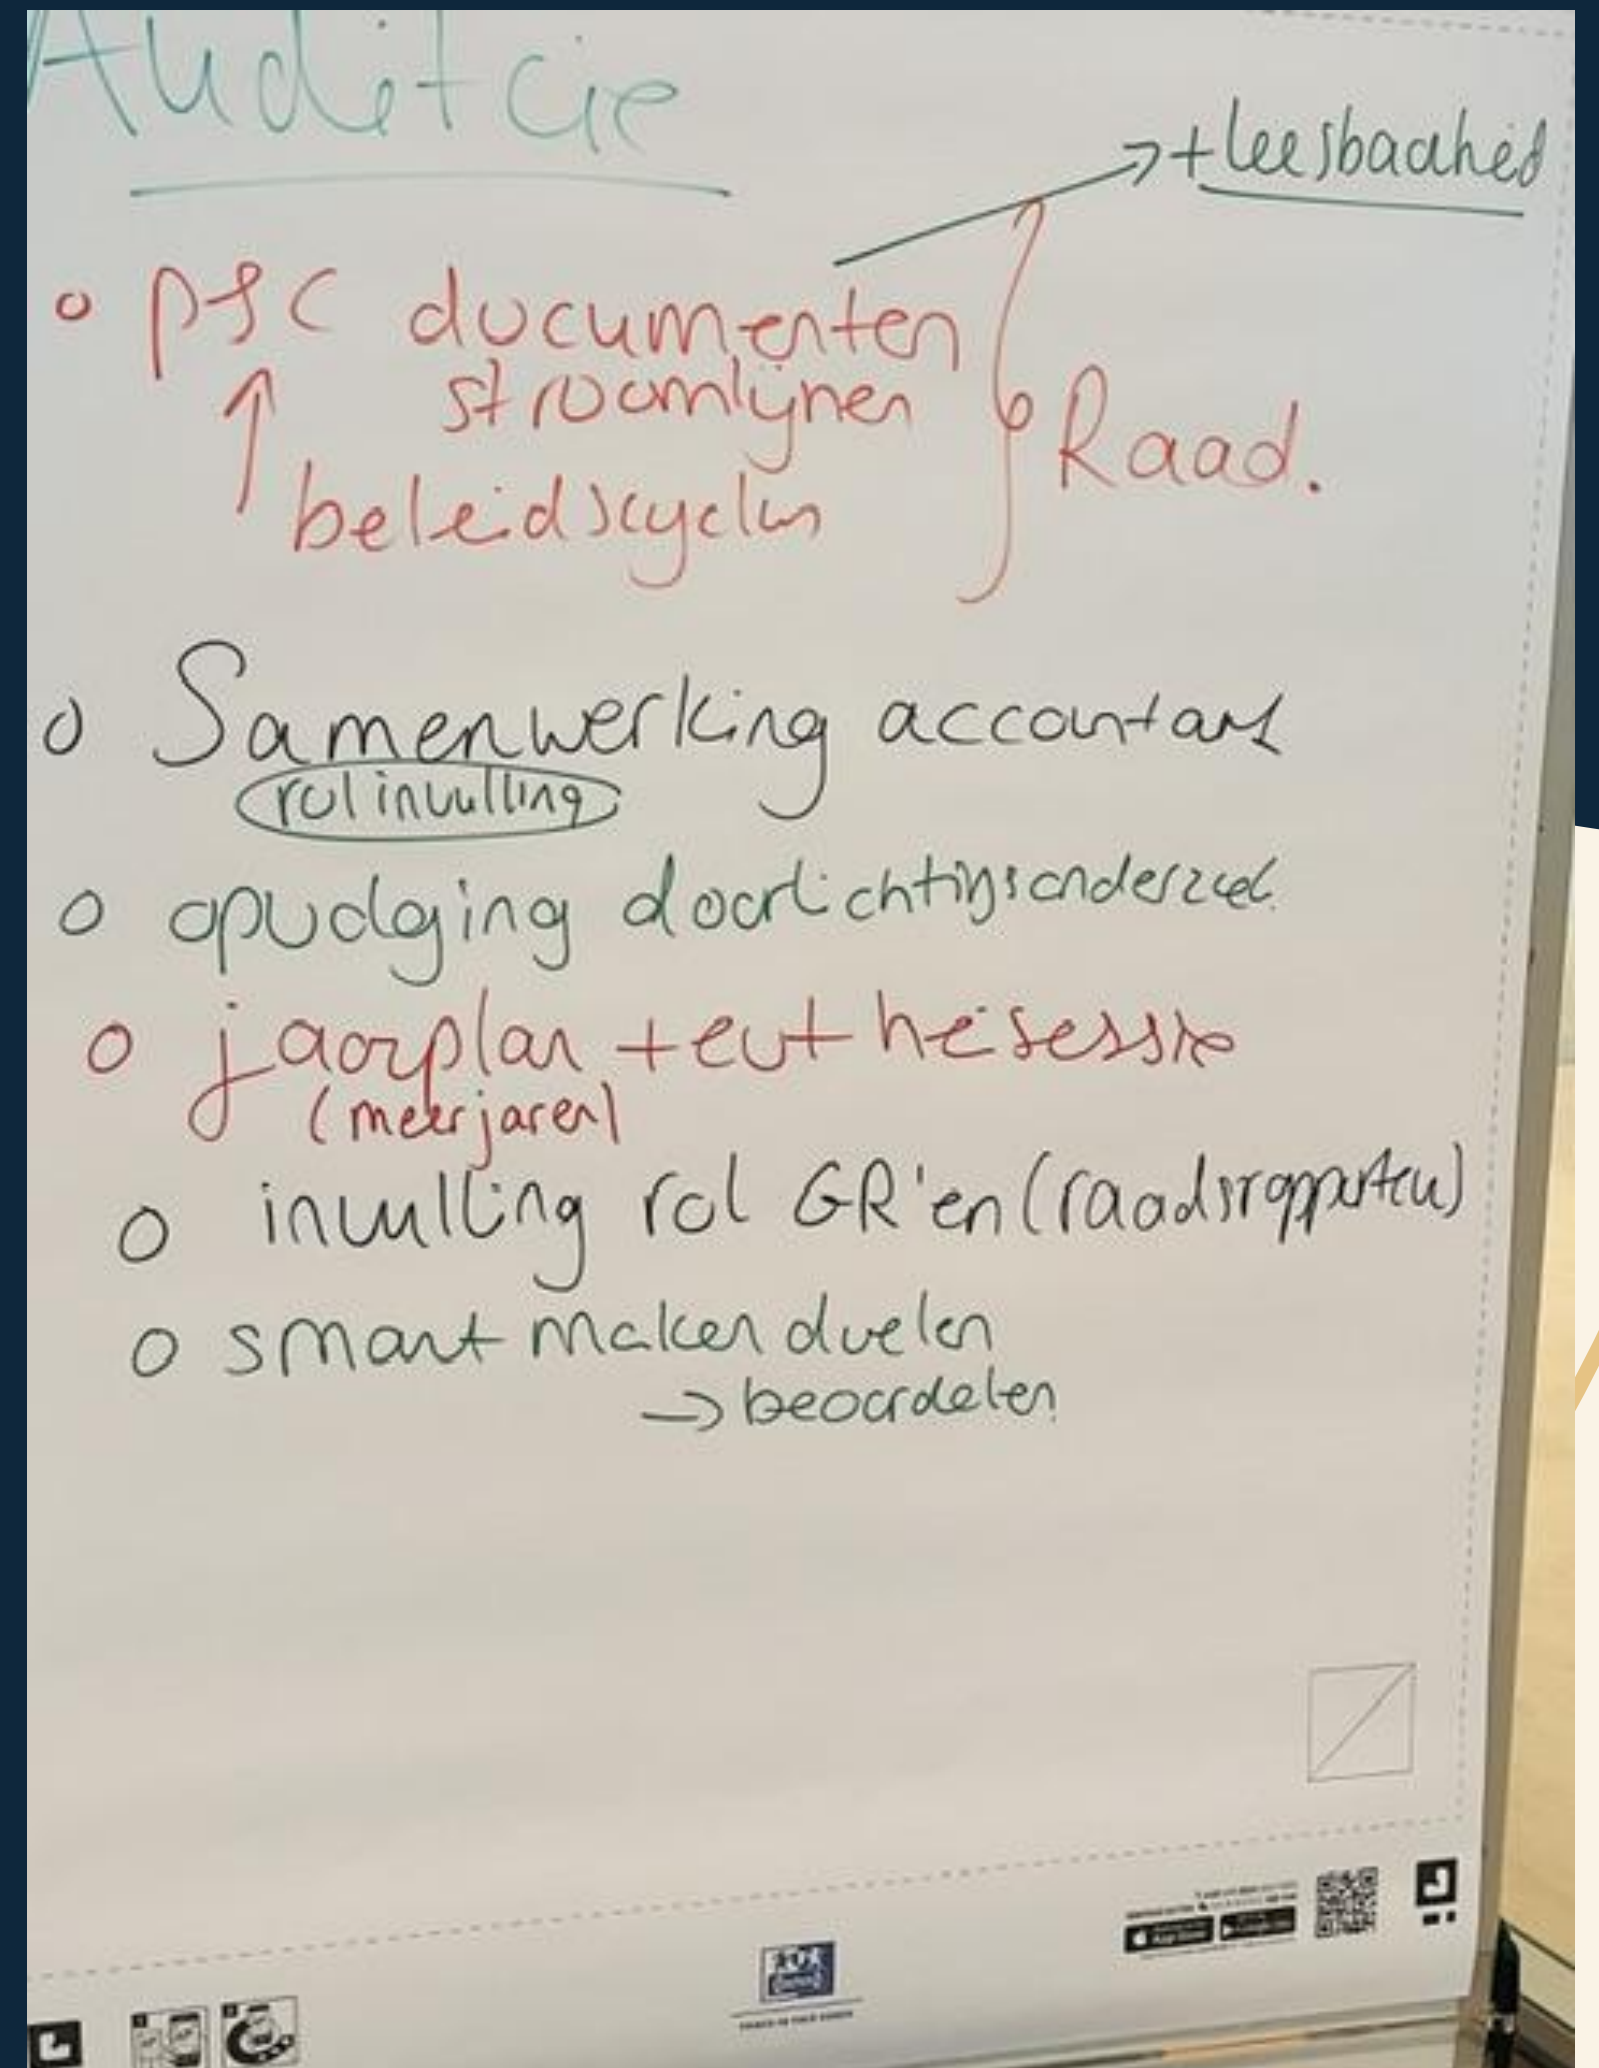 Auditcie
→ + leesbaarheid
o P&C documenten
stroomlijnen
beleidscyclus
Raad.
o Samenwerking accountant
rolinvulling
o opvolging doorlichtingsonderzoek
o jaarplan + evt heisessie
(meerjaren)
o invulling rol GR'en (raadsrapporten)
o smart maken doelen
→ beoordelen